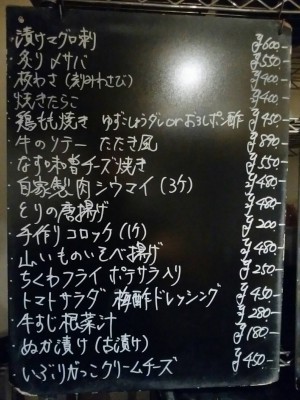 ・漬けマグロ刺 ¥600-
・炙り〆サバ ¥550-
・板わさ(刻みわさび) ¥400-
・焼きたらこ ¥400-
・鶏もも焼き ゆずこしょうダレorおろしポン酢 ¥450-
・牛のソテー たたき風 ¥890-
・なす味噌チーズ焼き ¥550-
・自家製肉シウマイ(3ケ) ¥480-
・とりの唐揚げ ¥480-
・手作りコロッケ(1ケ) ¥200-
・山いものいそべ揚げ ¥480-
・ちくわフライ ポテサラ入り ¥250-
・トマトサラダ 梅酢ドレッシング ¥450-
・牛すじ根菜汁 ¥280-
・ぬか漬け(古漬け) ¥180-
・いぶりがっこクリームチーズ ¥450-